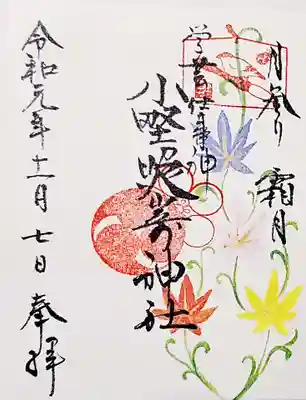 月参り
霜月
学芸仕事神
小野照崎神社
令和元年十一月七日奉拝